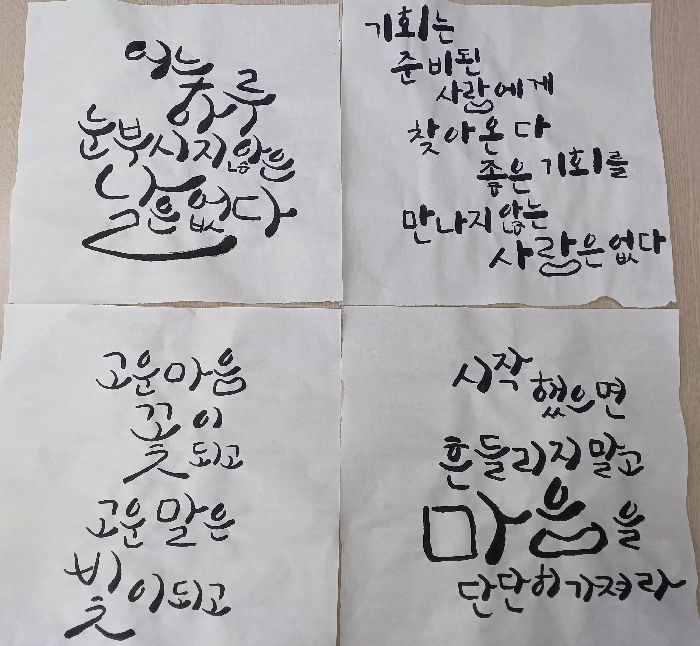 어느 하루
눈부시지않은
날은없다
기회는
준비된
사람에게
찾아온다
좋은 기회를
만나지않는
사람은없다
고운마음
꽃이
되고
고운말은
빛이되고
시작
했으면
흔들리지말고
마음을
단단히가져라